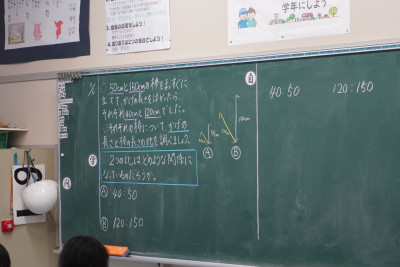 学年にしよう
○50cmと150cmの棒をまっすぐに
立てて、かげの長さをはかったら、
それぞれ40cmと120cmでした。
それぞれの棒について、かげの
長さと棒の長さの比を調べましょう。
2つの比はどのような関係に
なっているのだろうか。
Ⓐ 40:50
Ⓑ 120:150
Ⓐ
Ⓑ
自
40:50
120:150